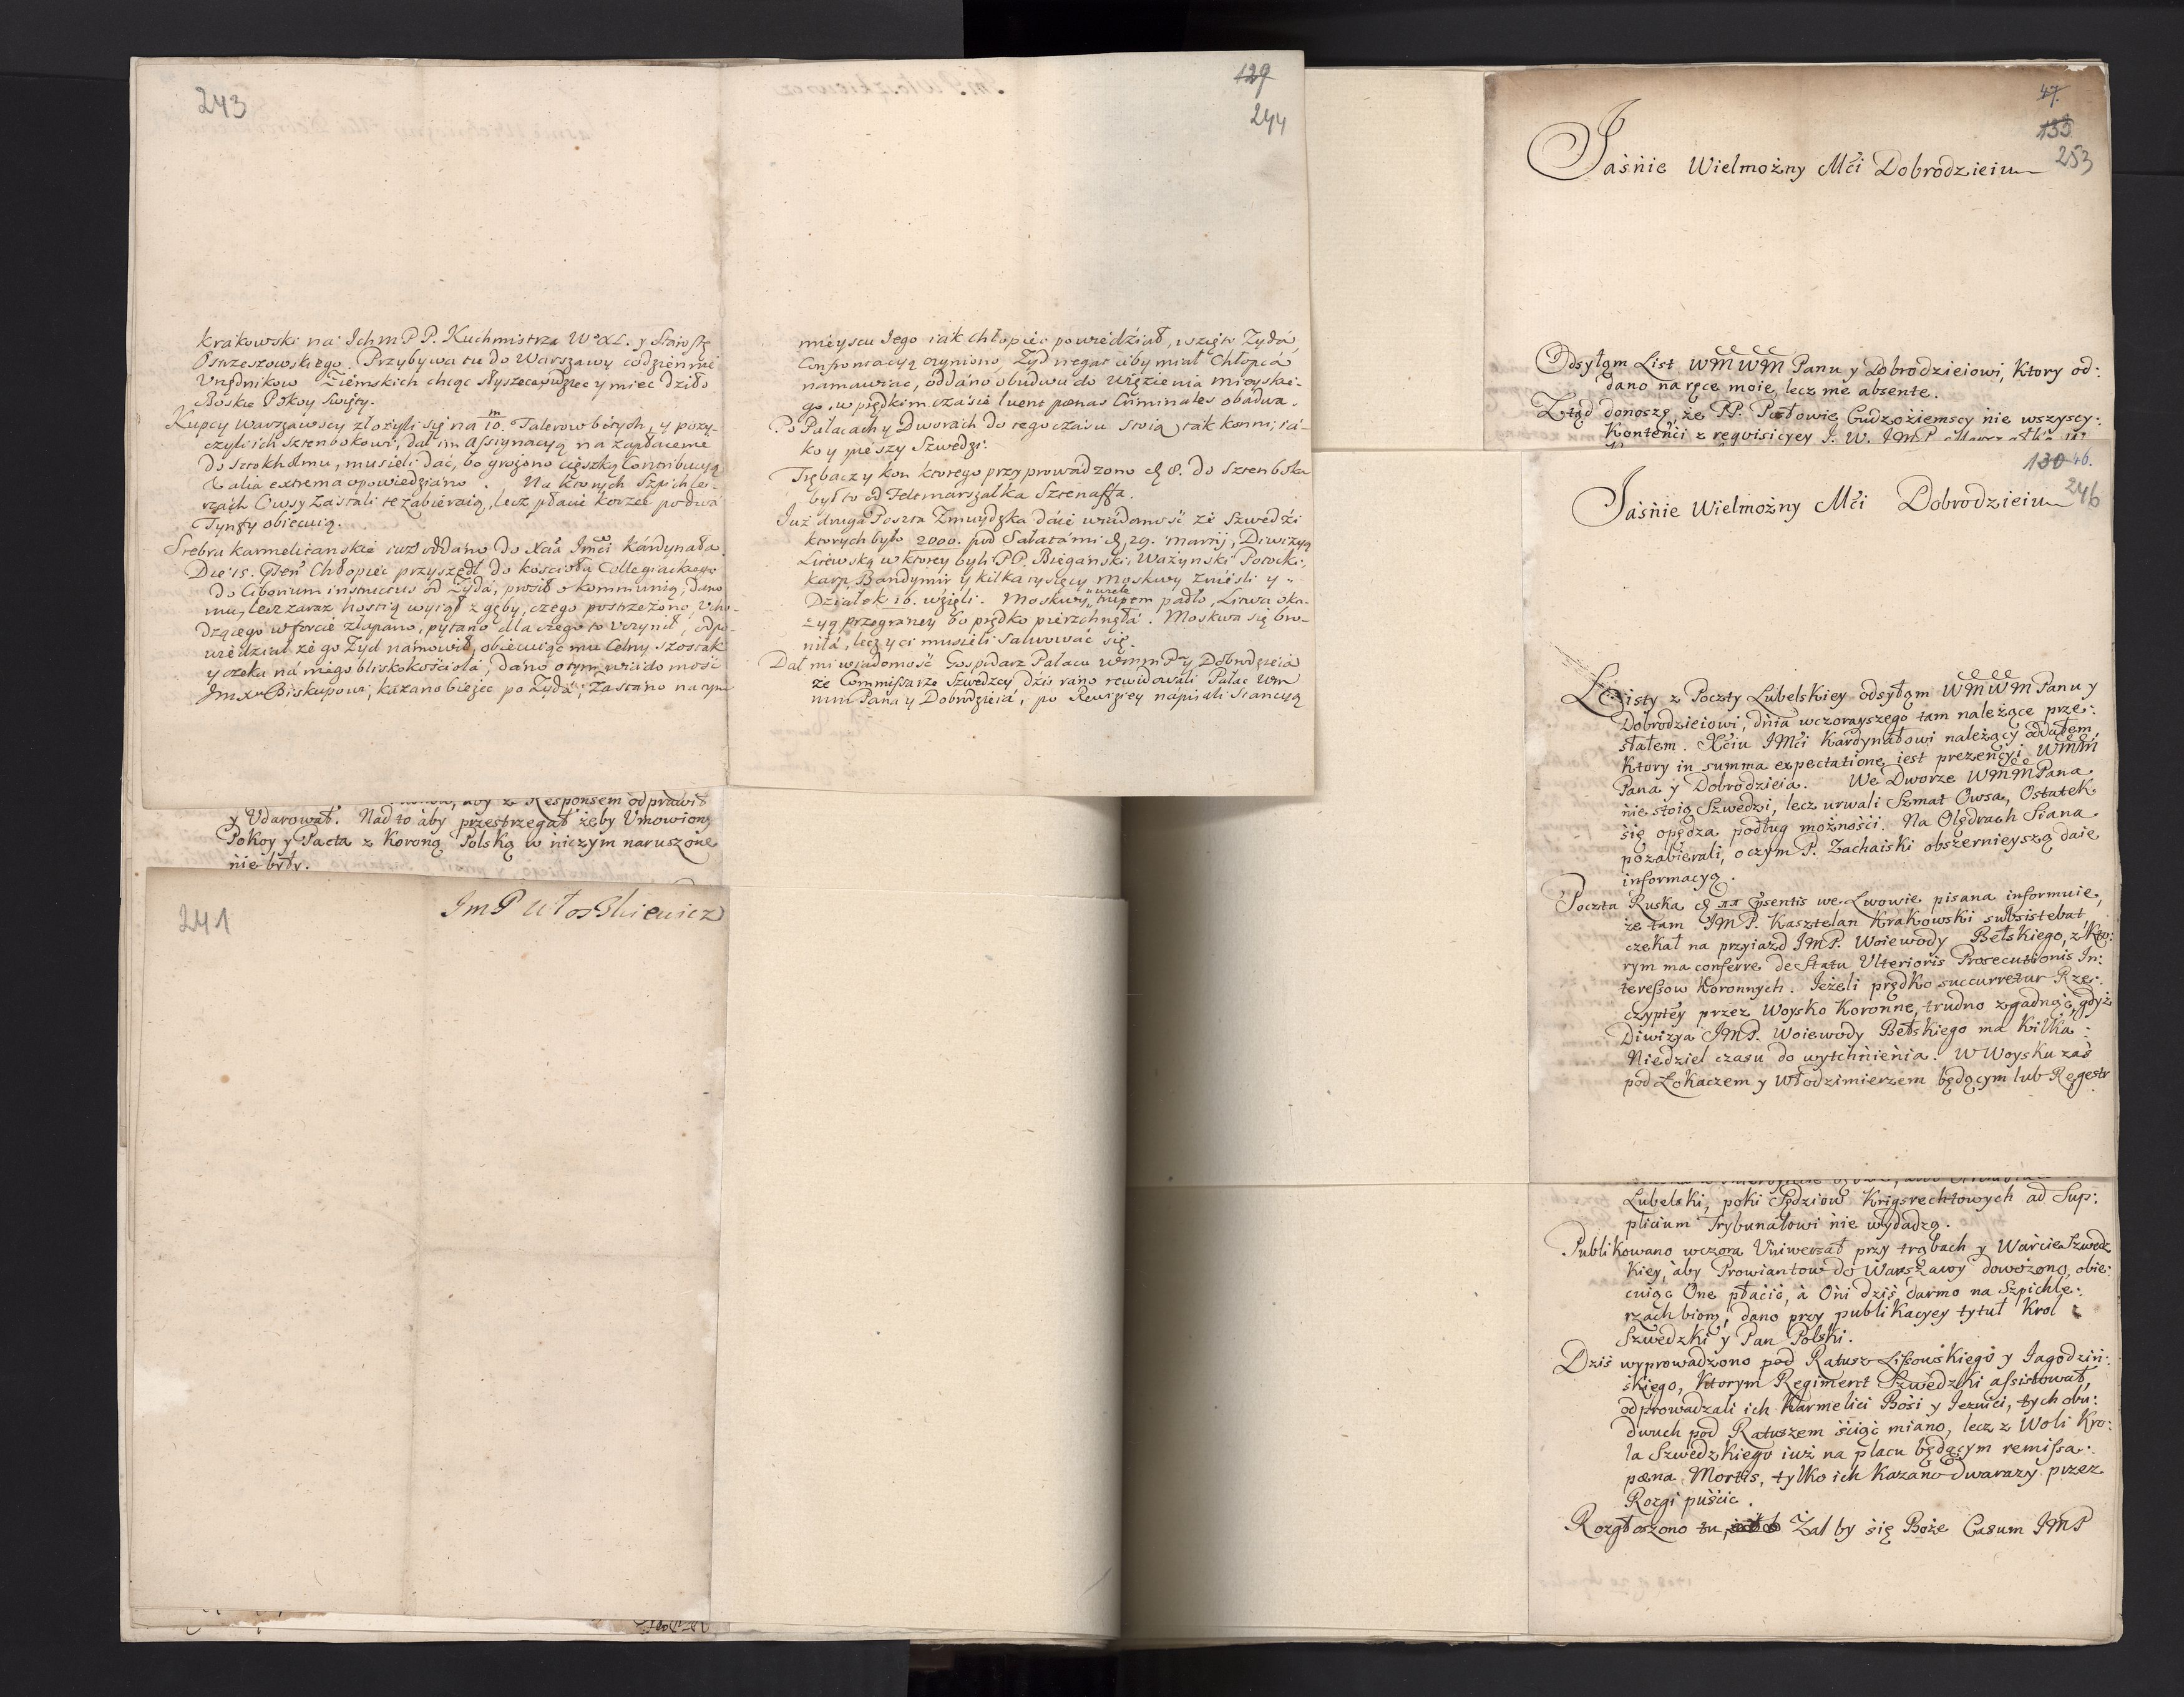 243
krakowski na Ichm P P. Kuchmistrza WoXL. y Starostę
Ostrzeszowskiego. Przybywa tu do Warszawy codziennie
Vrzędnikow Ziemskich chcąc słyszec y miec dzieło
Boskie Pokoy Swięty.
Kupcy Warszawscy złożyli się na 10.m Talerow bitych, y pozy-
czyli ich Sztenbokowi, dał im Assignacyą na zapłacenie
do Sztokholmu, musieli dać, bo grożono cięszką Contribucyą
& alia extrema opowiedziano. Na ktorych Szpichle-
rzach Owsy zastali te zabieraią, lecz płacić korzec po dwa
Tynfy obiecuią.
Srebra karmelitanskie iuż oddano do Xcia Imci Kardynała.
Die 15. Chłopiec przyszedł do kościoła Collegiackiego
do Ciborium instructus od Żyda, prosił o kommunią, dano
mu, lecz zaraz hostią wyiął z gęby, czego postrzeżono, Vcho-
dzącego w forcie złapano, pytano dla czego to Vczynił, odpo-
wiedział że go Żyd namowił, obiecuiąc mu Celny szostak
y czeka na niego blisko kościoła, dano o tym wiadomość
Imx Biskupowi, kazano bieżec po Żyda, Zastano na tym
129
244
mieyscu Iego iak chłopiec powiedział, wzięto Żyda,
Confrontacyą czyniono, Żyd negat iżby miał Chłopca
namawiac, oddano obudwu do więzienia mieyskie-
go, w prędkim czasie luent pœnas Criminales obadwa.
Po Pałacach y Dworach do tego czasu stoią tak konni, ia-
ko y pieszy Szwedzi.
Trębaczy kon ktorego przyprowadzono 8. do Sztenboka
był to od Feltmarszałka Sztenaffa.
Już druga Poszta Zmuydzka daie wiadomość że Szwedzi
ktorych było 2000. pod Sałatami 29. martij, Diwizyą
Litewską w ktorey byli PP. Biegański, Ważynski Potocki,
Karp Bandymir y kilka tysięcy Moskwy znieśli y
Działek 16. wzięli. Moskwy wiele trupem padło, Litwa oka-
zyą przegraney bo prędko pierzchnęła. Moskwa się bro-
niła, lecz y ci musieli salwować się.
Dał mi wiadomość Gospodarz Pałacu WMM Pna y Dobrodzieia
że Commissarze Szwedzcy dzis rano rewidowali Pałac Wm
mm Pana y Dobrodzieia, po Rewizyey napisali Stancyą
aby z Responsem odprawił
y Vdarował. Nad to aby przestrzegał żeby Vmowiony
Pokoy y Pacta z Koroną Polską w niczym naruszone
nie były.
241
ImP Włoszkiewicz
47.
135
253
Jaśnie Wielmożny Mći Dobrodzieiu
Odsyłam List WMWM Panu y Dobrodzieiowi, Ktory od:
dano na ręce moie, lecz me absente.
Ztąd donoszę, że PP. Posłowie Cudzoziemscy nie wszyscy:
Kontenći z reqvisicyey J. W. IMP.
130 46.
246
Jaśnie Wielmożny Mći Dobrodzieiu
Listy z Poczty Lubelskiey odsyłam WMWM Panu y
Dobrodzieiowi, dnia wczorayszego tam należące prze:
słałem. Xćiu IMći Kardynałowi należący oddałem,
Ktory in summa expectatione iest prezencyi WMM
Pana y Dobrodzieia. We Dworze WMM Pana
nie stoią Szwedzi, lecz urwali Szmat Owsa, Ostatek
się opędza podług możności. Na Olędrach Siana
pozabierali, o czym P. Zachaiski obszernieyszą daie
informacyą.
Poczta Ruska psentis we Lwowie pisana informuie,
że tam IMP. Kasztelan Krakowski subsistebat,
czekał na przyiazd IMP. Woiewody Bełskiego, z Kto:
rym ma conferre de Statu Vlterioris Prosecutionis In:
teressow Koronnych. Ieżeli prędko succurretur Rze:
czyptey przez Woysko Koronne, trudno zgadnąć, gdyż
Diwizya IMP. Woiewody Bełskiego ma kilka:
Niedziel czasu do wytchnienia. W Woysku zaś
pod Lokaczem y Włodzimierzem będącym lub Regestr
Lubelski, poki Sędziow Krigsrechtowych ad Sup:
plicium Trybunałowi nie wydadzą.
Publikowano wczora Vniwersał przy trąbach y Warcie Szwedz
Kiey, aby Prowiantow do Warszawy dowożono, obie:
cuiąc One płacić, à Oni dziś darmo na Szpichle:
rzach biorą, dano przy publikacyey tytuł Krol
Szwedzki y Pan Polski.
Dziś wyprowadzono pod Ratusz Lissowskiego y Iagodzin:
skiego, Ktorym Regiment Szwedzki assistował,
odprowadzali ich Karmelici Bosi y Iezuici, tych obu:
dwuch pod Ratuszem ściąć miano, lecz z Woli Kro:
la Szwedzkiego iuż na placu będącym remissa:
pœna Mortis, tylko ich Kazano dwa razy przez
Rozgi puścić.
Rozgłoszono tu, Zal by się Boże Casum IMP